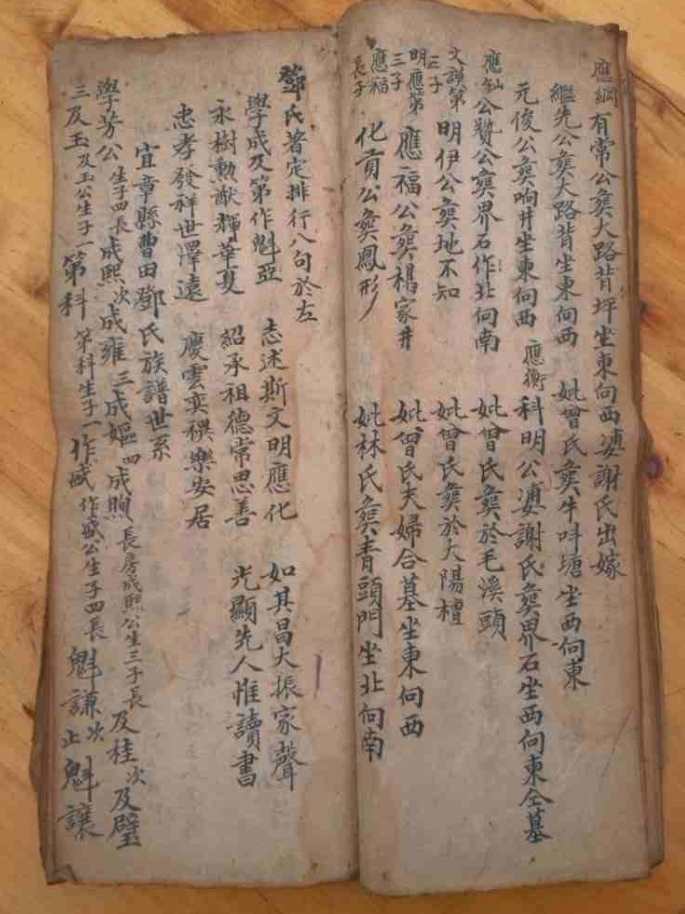 應綱 有常公奠大路背坪坐東向西 婆謝氏出嫁
繼先公奠大路背坐東向西 妣曾氏奠牛呌塘坐西向東
元俊公奠响井坐東向西 應衡 科明公婆謝氏奠界石坐西向東仝墓
公贊公奠界石作北向南 妣曾氏奠於毛溪頭
文謨第三子 明伊公奠地不知 妣曾氏奠於大陽
明應第三子 應福公奠楊家井 妣曾氏夫婦合墓坐東向西
應福長子 化貢公奠鳳形 妣林氏奠青頭門坐北向南
鄧氏著定排行八句於左
學成及第作魁亞 志述斯文明應化 如其昌大振家聲
永樹勳猷輝華夏 紹承祖德常思善 光顯先人惟讀書
忠孝發祥世澤遠 慶雲奕禩樂安居
宜章縣曹田鄧氏族譜世系
學芳公 生子四長成熙 次成雍 三成嫗 四成煦 長房成熙公生三子長及桂 次及璧
三及玉 及玉公生子一第科 第科生子一作盛 作盛公生子四長魁謙 次魁讓